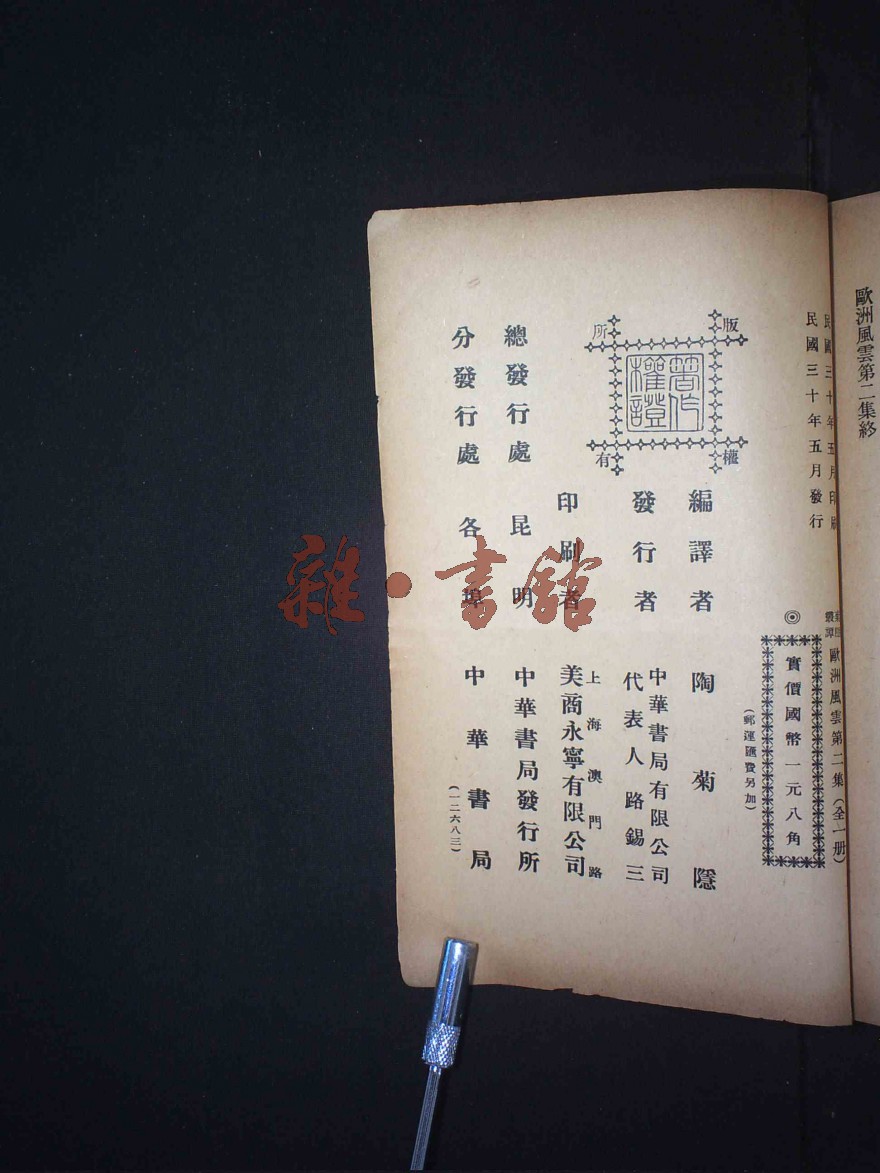 歐洲風雲第二集終
民國三十年五月印刷
民國三十年五月發行
歐洲風雲第二集（全一册）
◎
實價國幣一元八角
（郵運匯費另加）
版權所有
著作權證
編譯者 陶菊隱
發行者 中華書局有限公司
代表人路錫三
印刷者 上海澳門路
美商永寧有限公司
總發行處 昆明 中華書局發行所
分發行處 各埠 中華書局
（一二六八三）
雜·書館